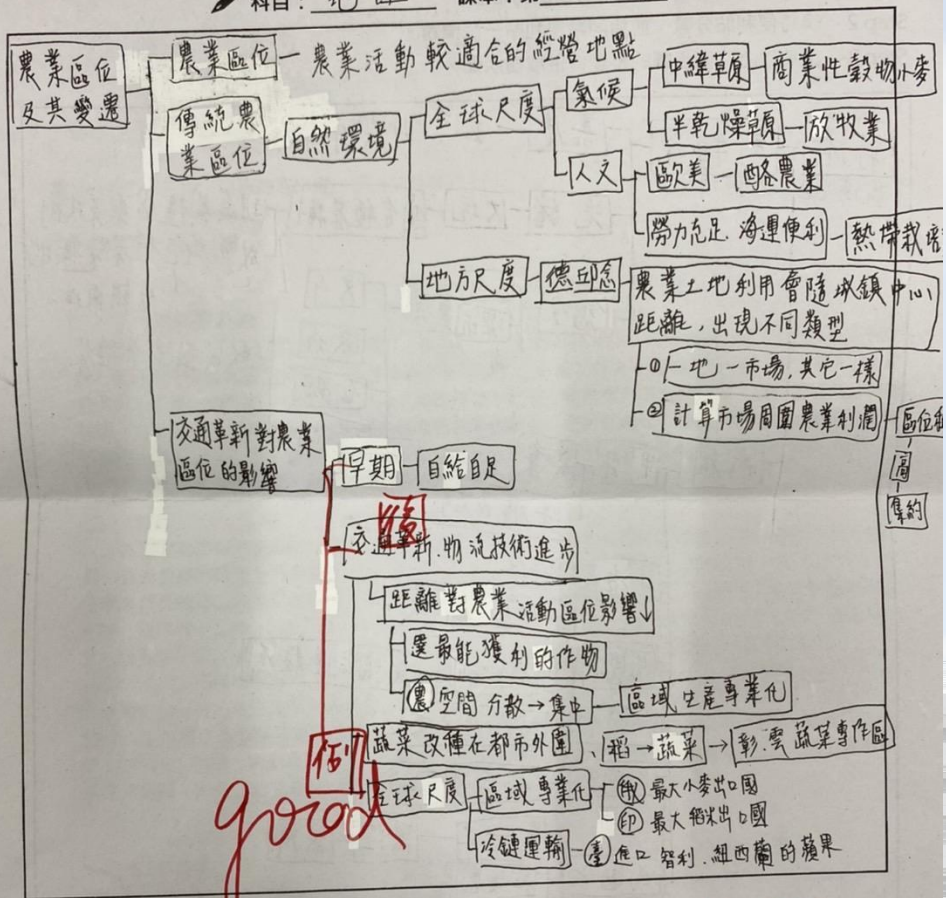 科目：地理
農業區位
及其變遷
農業區位
農業活動較適合的經營地點
傳統農
業區位
自然環境
全球尺度
氣候
中緯草原
商業性穀物小麥
半乾燥草原
放牧業
人文
歐美
酪農業
勞力充足、海運便利
熱帶栽培
地方尺度
德邱念
農業土地利用會隨城鎮中心
距離，出現不同類型
① 一地一市場，其它一樣
② 計算市場周圍農業利潤
區位
高
集約
交通革新對農業
區位的影響
早期
自給自足
後
交通革新、物流技術進步
距離對農業活動區位影響↓
選最能獲利的作物
農 空間 分散→集中
區域生產專業化
例
蔬菜改種在都市外圍、稻→蔬菜→彰、雲蔬菜專作區
全球尺度
區域專業化
俄 最大小麥出口國
印 最大稻米出口國
冷鏈運輸
臺 進口 智利、紐西蘭的蘋果
good